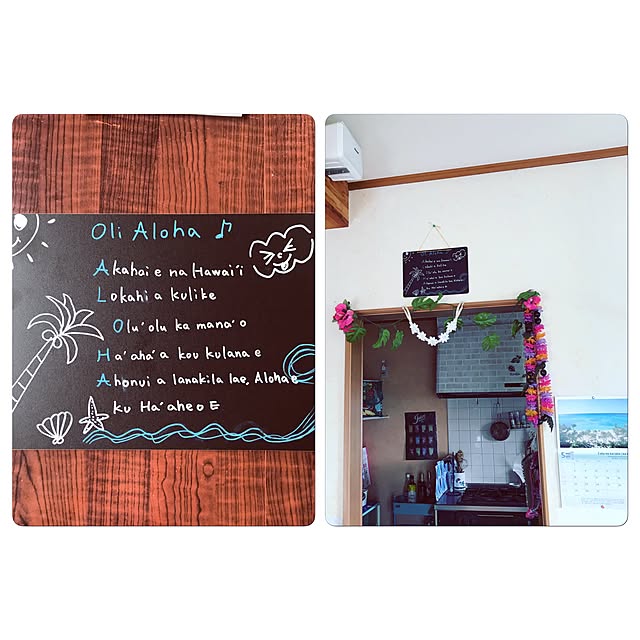 Oli Aloha ♪
Akahai e na Hawai'i
Lokahi a kulike
Olu'olu ka mana'o
Ha'aha'a kou kulana e
Ahonui a lanakila lae, Aloha e
ku Ha'aheo E